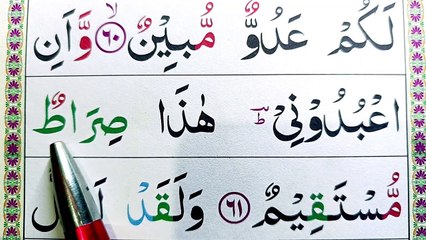 لَكُمْ عَدُوٌّ مُّبِيْنٌ ۙ﴿۶۰﴾ وَّاَنِ
اعْبُدُوْنِيْ ؕ هٰذَا صِرَاطٌ
مُّسْتَقِيْمٌ ﴿۶۱﴾ وَلَقَدْ